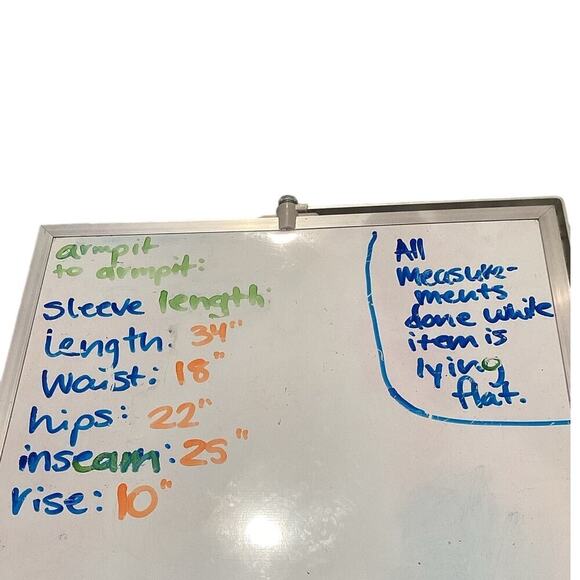 armpit
to armpit:
sleeve length:
Length: 34"
Waist: 18"
hips: 22"
inseam: 25"
rise: 10"
All
measure-
ments
done while
item is
lying
flat.